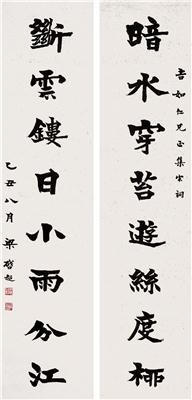 吉如仁兄正集宋詞
暗水穿苔遊絲度柳
斷雲鏤日小雨分江
乙丑八月 梁啓超